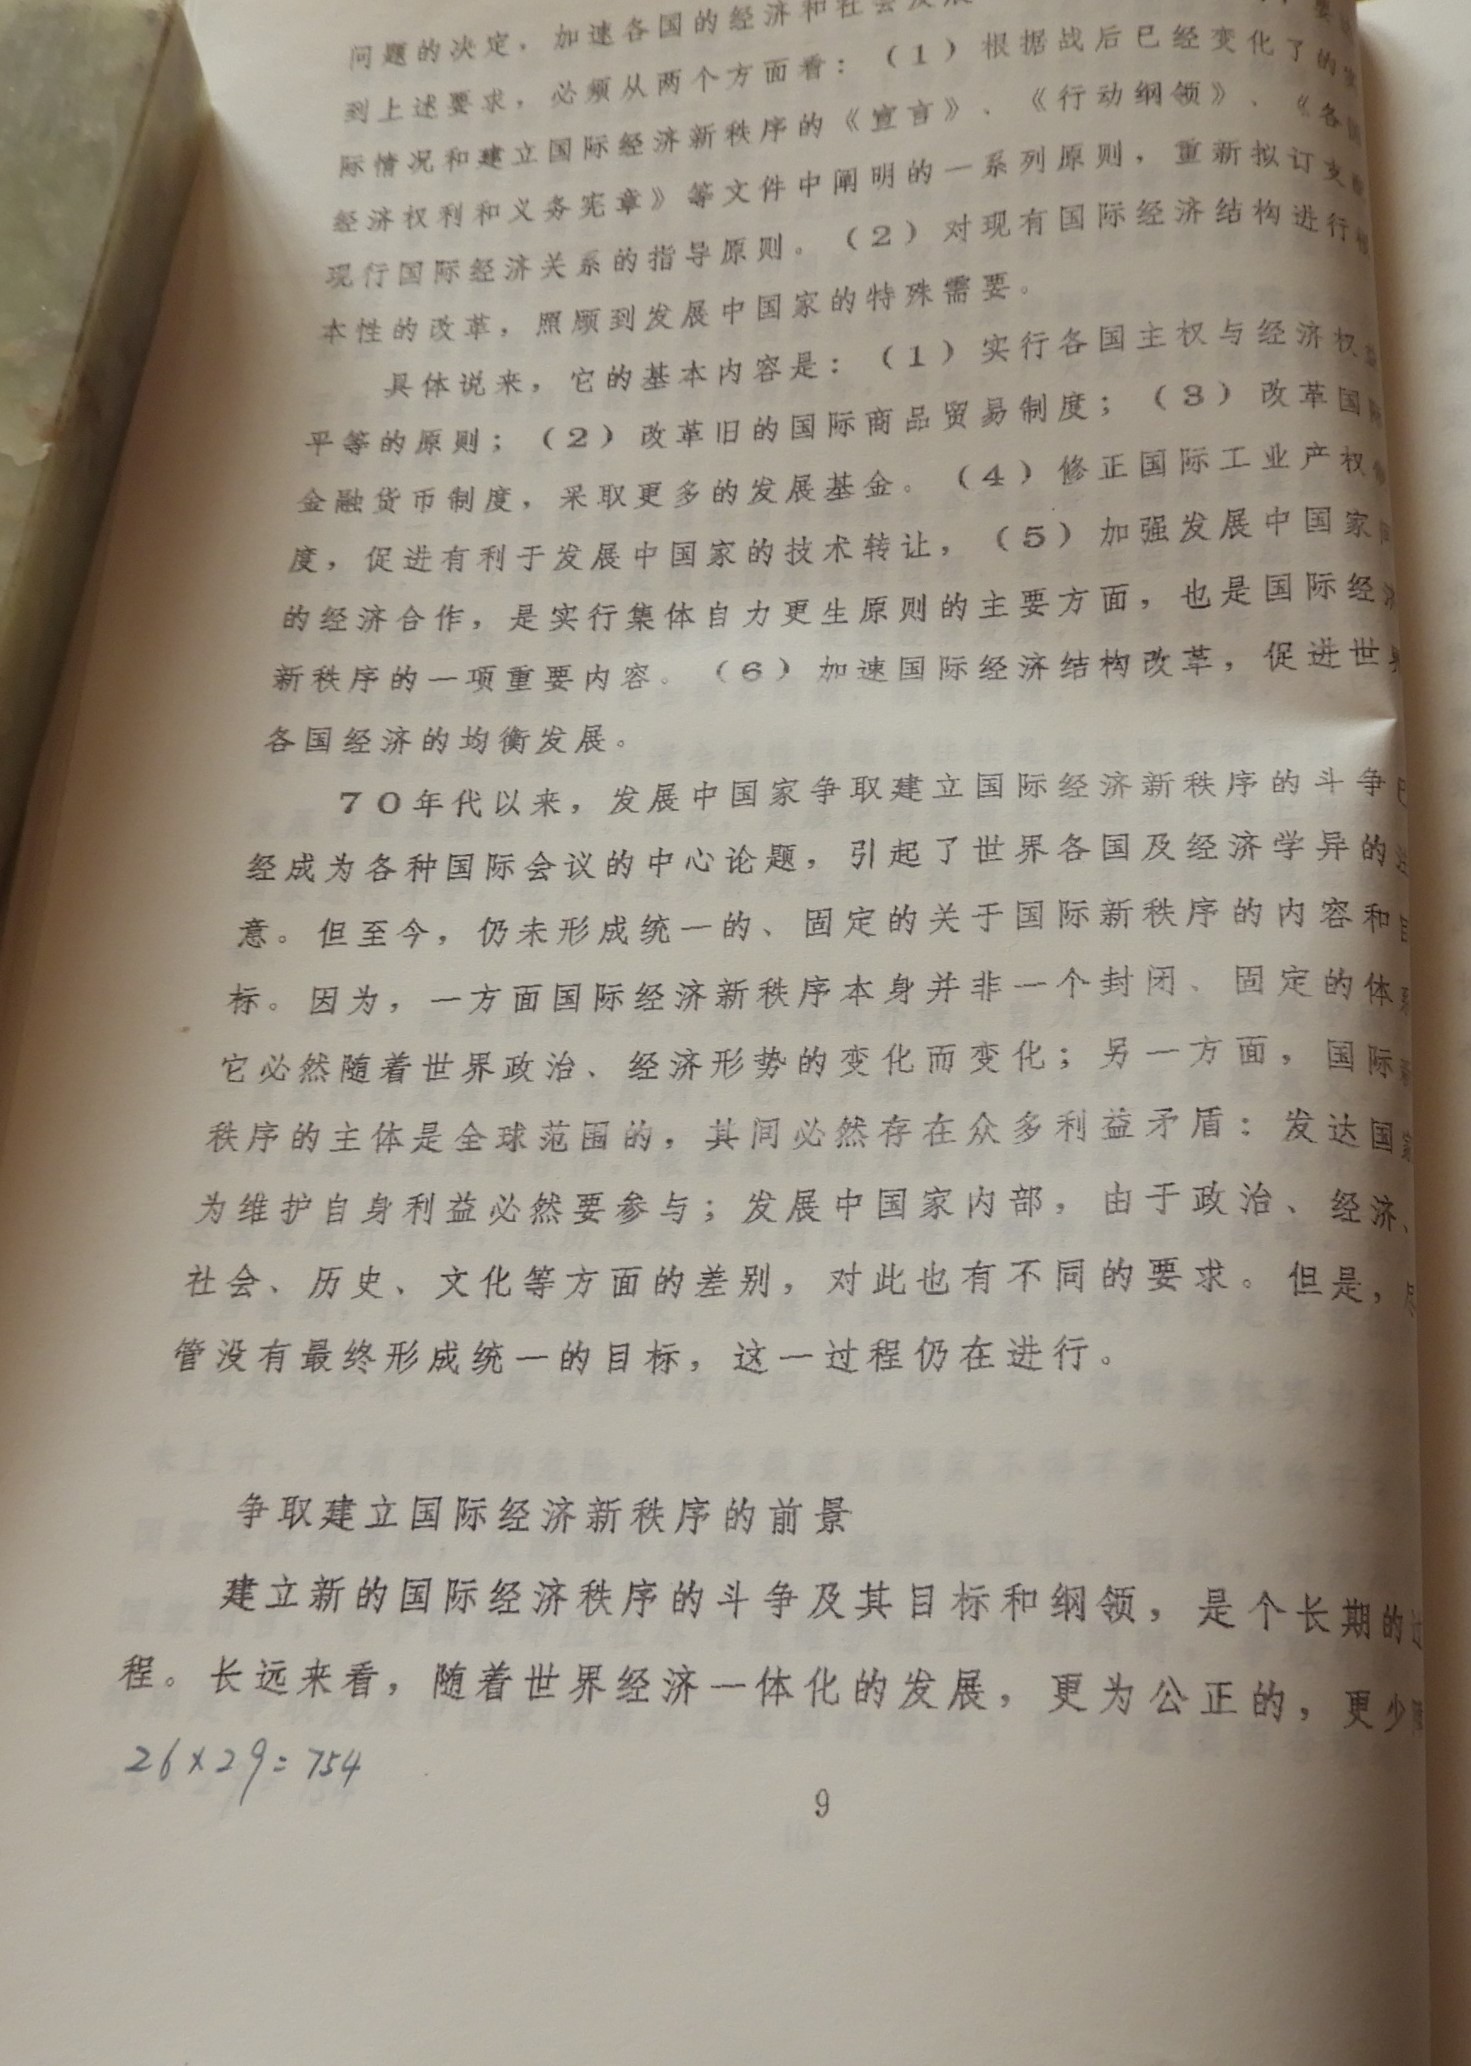 问题的决定，加速各国的经济和社会发展
到上述要求，必须从两个方面看：（1）根据战后已经变化了的实
际情况和建立国际经济新秩序的《宣言》、《行动纲领》、《各国
经济权利和义务宪章》等文件中阐明的一系列原则，重新拟订支
现行国际经济关系的指导原则。（2）对现有国际经济结构进行
本性的改革，照顾到发展中国家的特殊需要。
具体说来，它的基本内容是：（1）实行各国主权与经济权
平等的原则；（2）改革旧的国际商品贸易制度；（3）改革国际
金融货币制度，采取更多的发展基金。（4）修正国际工业产权
度，促进有利于发展中国家的技术转让，（5）加强发展中国家间
的经济合作，是实行集体自力更生原则的主要方面，也是国际经济
新秩序的一项重要内容。（6）加速国际经济结构改革，促进世界
各国经济的均衡发展。
70年代以来，发展中国家争取建立国际经济新秩序的斗争已
经成为各种国际会议的中心论题，引起了世界各国及经济学异的注
意。但至今，仍未形成统一的、固定的关于国际新秩序的内容和目
标。因为，一方面国际经济新秩序本身并非一个封闭、固定的体系
它必然随着世界政治、经济形势的变化而变化；另一方面，国际新
秩序的主体是全球范围的，其间必然存在众多利益矛盾：发达国家
为维护自身利益必然要参与；发展中国家内部，由于政治、经济、
社会、历史、文化等方面的差别，对此也有不同的要求。但是，尽
管没有最终形成统一的目标，这一过程仍在进行。
争取建立国际经济新秩序的前景
建立新的国际经济秩序的斗争及其目标和纲领，是个长期的过
程。长远来看，随着世界经济一体化的发展，更为公正的，更少
26×29=754
9